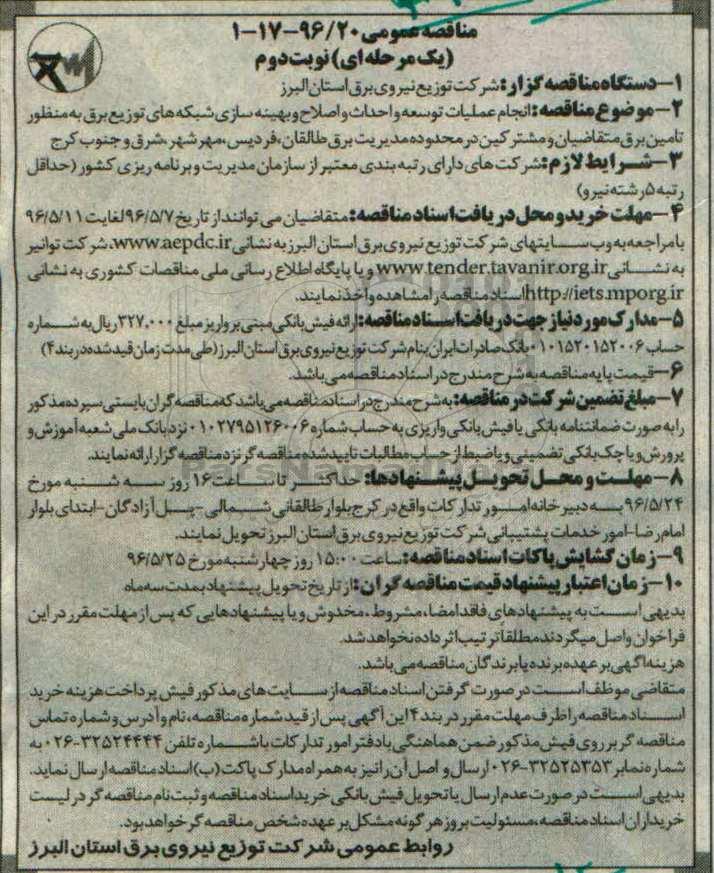 مناقصه عمومی ۹۶/۲۰-۱۷-۱
(یک مرحله ای) نوبت دوم
۱-دستگاه مناقصه گزار: شرکت توزیع نیروی برق استان البرز
۲-موضوع مناقصه: انجام عملیات توسعه و احداث و اصلاح و بهینه سازی شبکه های توزیع برق به منظور
تامین برق متقاضیان و مشترکین در محدوده مدیریت برق طالقان، فردیس، مهرشهر، شرق و جنوب کرج
۳-شرایط لازم: شرکت های دارای رتبه بندی معتبر از سازمان مدیریت و برنامه ریزی کشور (حداقل
رتبه ۵ رشته نیرو)
۴-مهلت خرید و محل دریافت اسناد مناقصه: متقاضیان می توانند از تاریخ ۹۶/۵/۷ لغایت ۹۶/۵/۱۱
بامراجعه به وب سایتهای شرکت توزیع نیروی برق استان البرز به نشانی www.aepdc.ir، شرکت توانیر
به نشانی www.tender.tavanir.org.ir و یا پایگاه اطلاع رسانی ملی مناقصات کشوری به نشانی
http://iets.mporg.ir اسناد مناقصه را مشاهده و اخذ نمایند.
۵-مدارک مورد نیاز جهت دریافت اسناد مناقصه: ارائه فیش بانکی مبنی بر واریز مبلغ ۳۲۷,۰۰۰ ریال به شماره
حساب ۰۱۰۱۵۲۰۱۵۲۰۰۶ بانک صادرات ایران بنام شرکت توزیع نیروی برق استان البرز (طی مدت زمان قید شده در بند ۴)
۶-قیمت پایه مناقصه به شرح مندرج در اسناد مناقصه می باشد.
۷-مبلغ تضمین شرکت در مناقصه: به شرح مندرج در اسناد مناقصه می باشد که مناقصه گران بایستی سپرده مذکور
را به صورت ضمانتنامه بانکی یا فیش بانکی واریزی به حساب شماره ۰۱۰۲۷۹۵۱۲۶۰۰۶ نزد بانک ملی شعبه آموزش و
پرورش و یا چک بانکی تضمینی و یا ضبط از حساب مطالبات تایید شده مناقصه گر نزد مناقصه گزار ارائه نمایند.
۸-مهلت و محل تحویل پیشنهادها: حداکثر تا ساعت ۱۶ روز سه شنبه مورخ
۹۶/۵/۲۴ به دبیرخانه امور تدارکات واقع در کرج بلوار طالقانی شمالی-چهل آزادگان-ابتدای بلوار
امام رضا-امور خدمات پشتیبانی شرکت توزیع نیروی برق استان البرز تحویل نمایند.
۹-زمان گشایش پاکات اسناد مناقصه: ساعت ۱۵:۰۰ روز چهارشنبه مورخ ۹۶/۵/۲۵
۱۰-زمان اعتبار پیشنهاد قیمت مناقصه گران: از تاریخ تحویل پیشنهاد بمدت سه ماه
بدیهی است به پیشنهادهای فاقد امضا، مشروط، مخدوش و یا پیشنهادهایی که پس از مهلت مقرر در این
فراخوان واصل میگردند مطلقا ترتیب اثر داده نخواهد شد.
هزینه آگهی بر عهده برنده یا برندگان مناقصه می باشد.
متقاضی موظف است در صورت گرفتن اسناد مناقصه از سایت های مذکور فیش پرداخت هزینه خرید
اسناد مناقصه را ظرف مهلت مقرر در بند ۴ این آگهی پس از قید شماره مناقصه، نام و آدرس و شماره تماس
مناقصه گر بر روی فیش مذکور ضمن هماهنگی با دفتر امور تدارکات با شماره تلفن ۳۲۵۲۴۴۴۴-۰۲۶ به
شماره نمابر ۳۲۵۲۵۳۵۳-۰۲۶ ارسال و اصل آن را نیز به همراه مدارک پاکت (ب) اسناد مناقصه ارسال نماید.
بدیهی است در صورت عدم ارسال یا تحویل فیش بانکی خرید اسناد مناقصه و ثبت نام مناقصه گر در لیست
خریداران اسناد مناقصه، مسئولیت بروز هر گونه مشکل بر عهده شخص مناقصه گر خواهد بود.
روابط عمومی شرکت توزیع نیروی برق استان البرز